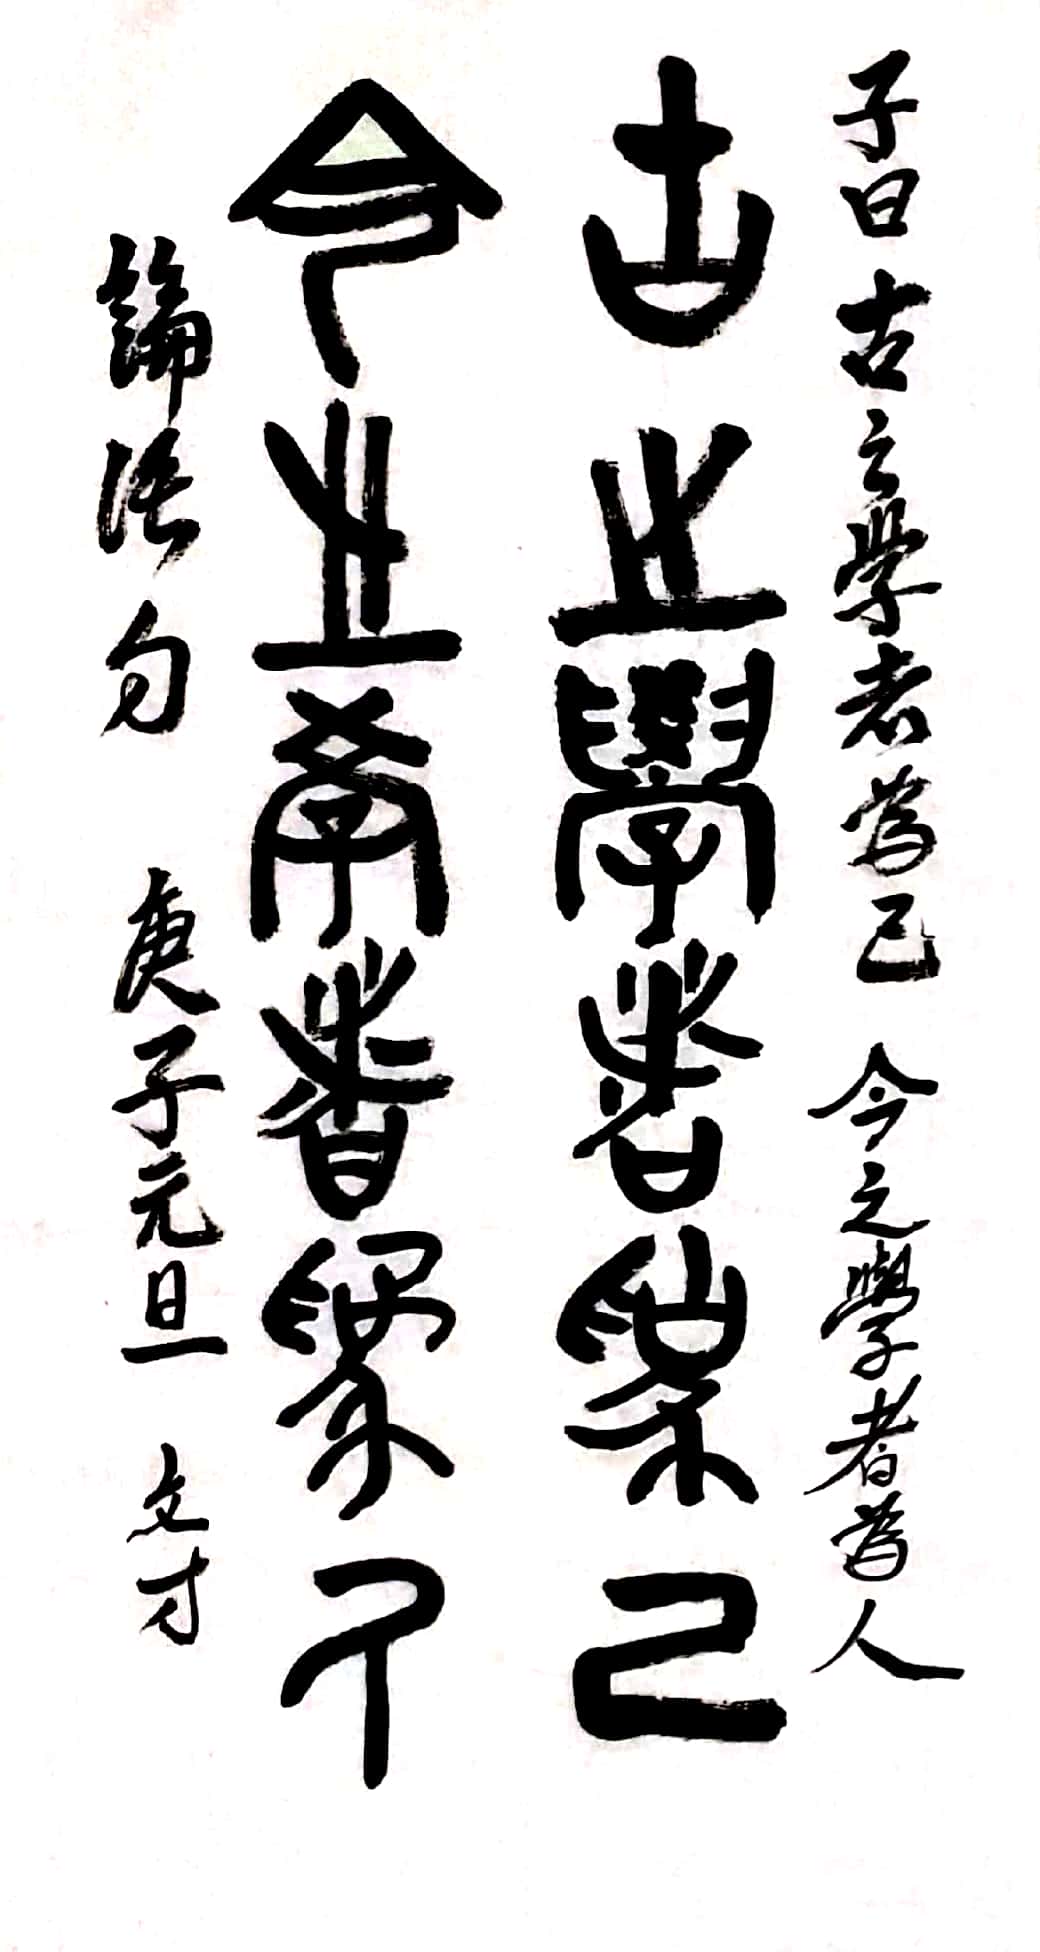 子曰古之學者為己今之學者為人
古之學者為己
今之學者為人
論語句 庚子元旦 文才